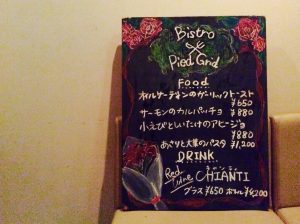 Bistro
Pied Grid
Food
オイルサーディンのガーリックトースト
¥650
サーモンのカルパッチョ ¥880
小えびとしいたけのアヒージョ
¥880
あさりと大葉のパスタ ¥1,200
DRINK
Red Wine
CHIANTI
グラス ¥650 ボトル ¥4,200